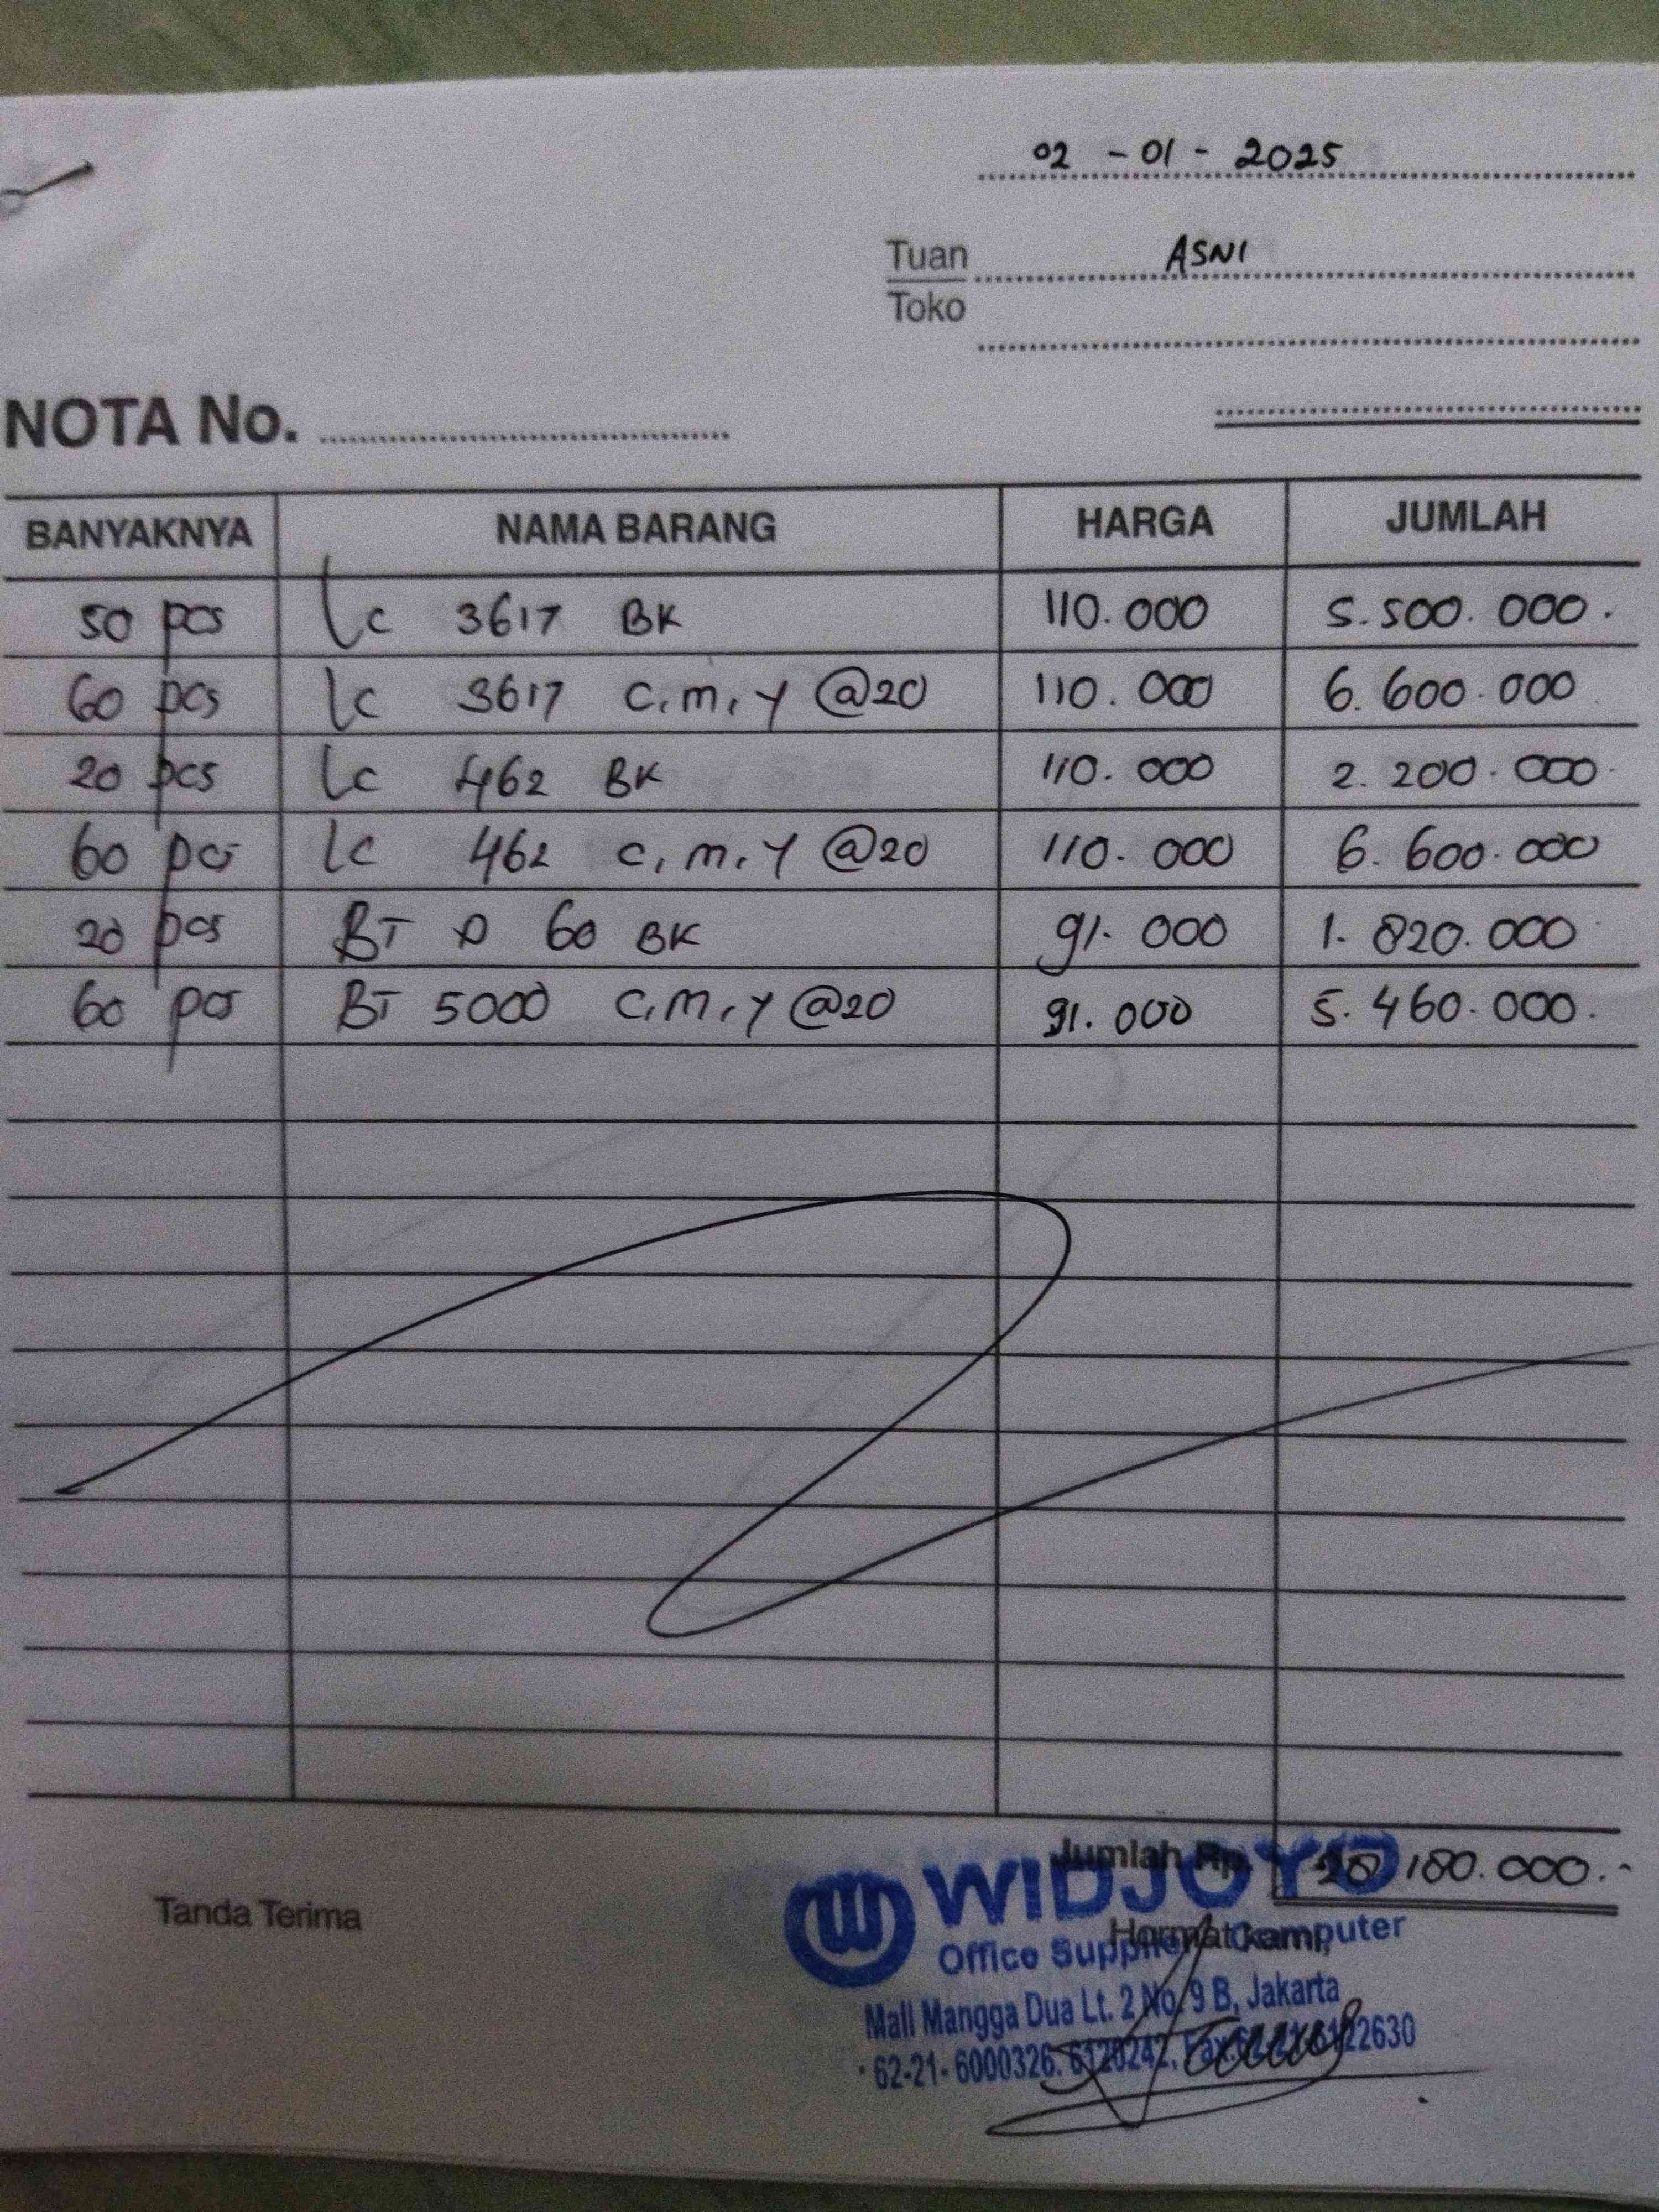 02 - 01 - 2025
Tuan ASNI
Toko
NOTA No.
BANYAKNYA NAMA BARANG HARGA JUMLAH
50 pcs lc 3617 BK 110.000 5.500.000.
60 pcs lc 3617 C,M,Y @20 110.000 6.600.000
20 pcs lc 462 BK 110.000 2.200.000
60 pcs lc 462 C,M,Y @20 110.000 6.600.000
20 pcs BT D 60 BK 91.000 1.820.000
60 pcs BT 5000 C,M,Y @20 91.000 5.460.000.
Jumlah Rp. 180.000.-
Tanda Terima
Hormat kami,
WIDJOYO
Office Supplies Computer
Mall Mangga Dua Lt. 2 No. 9 B, Jakarta
62-21-6000326. 6120242, Fax.